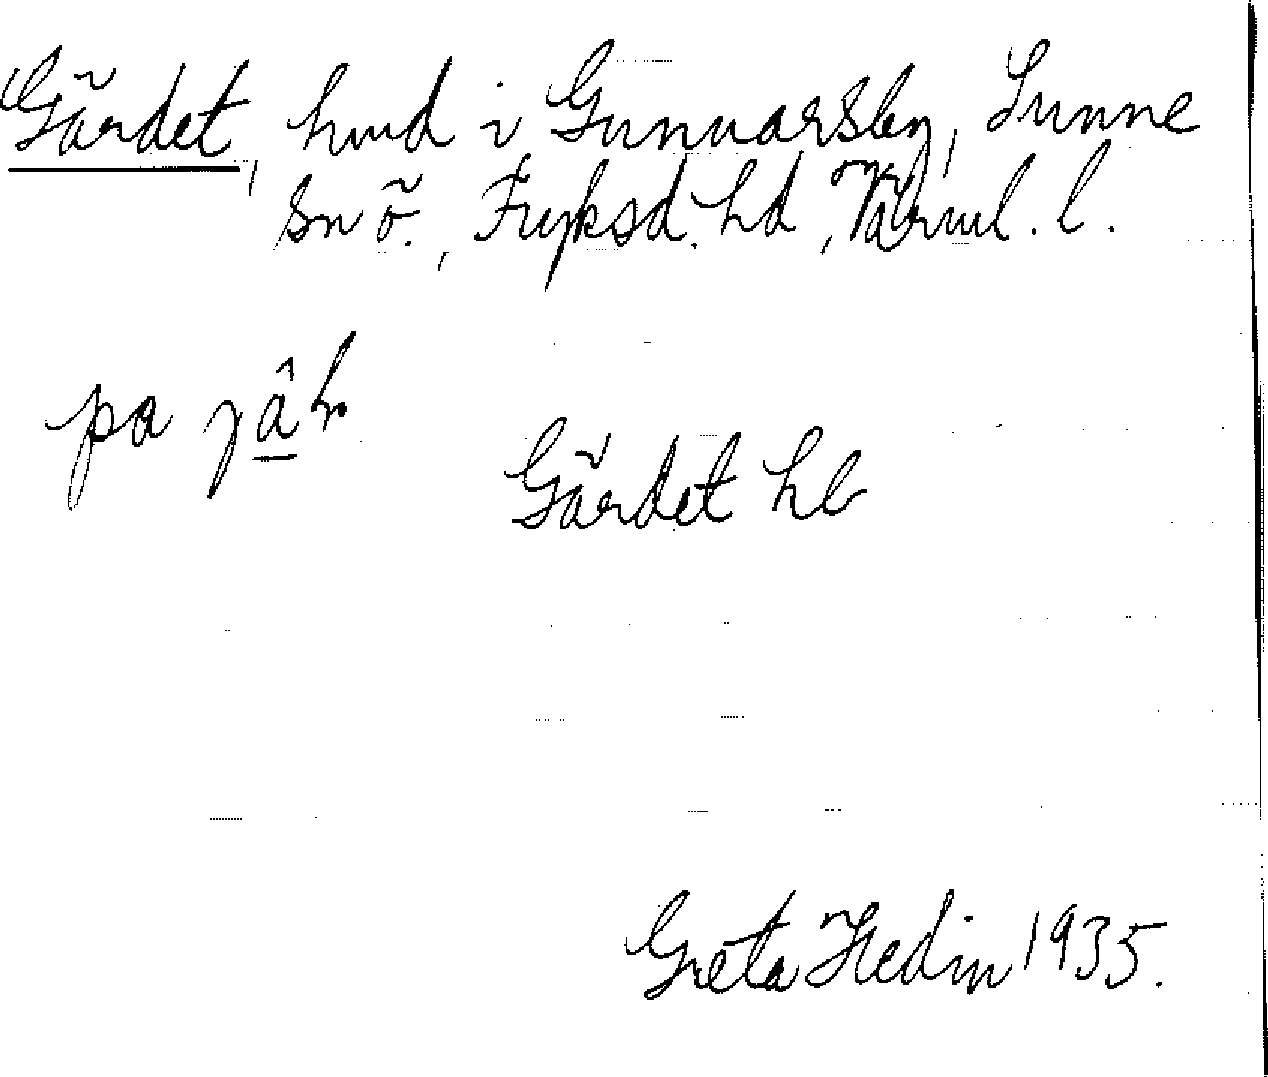 Gärdet, hmd i Gunnarsby, Sunne
sn ö., Fryksd. hd, Värml. l.
pa jâ
Gärdet hb
Greta Hedin 1935.